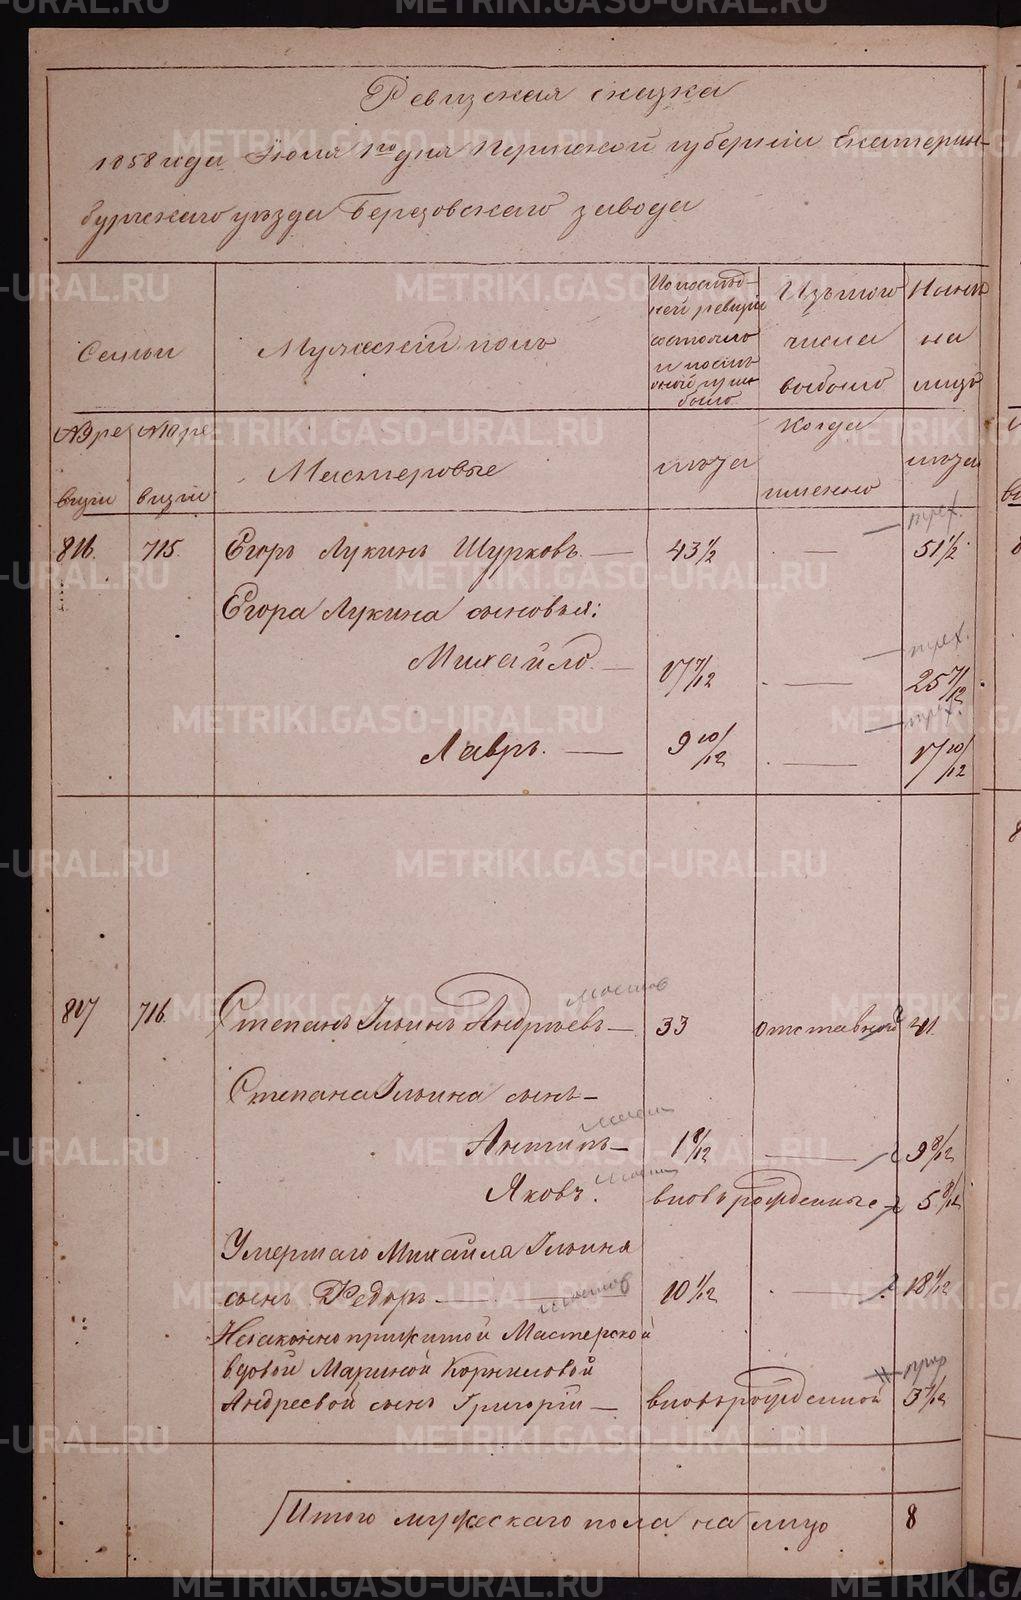 Ревизская сказка
1858 года Июля 1го дня Пермской губернии Екатерин-
бургскаго уезда Березовскаго завода
Семьи
Мужеский полъ
По послѣд-
ней ревизіи
состояло
и послѣ
оной при
было
Изъ того
числа
выбыло
Нынѣ
на
лицо
№ 9 ре
визіи
№ 10 ре
визіи
Мастеровые
лѣта
Когда
именно
лѣта
816. 715. Егоръ Лукинъ Шурковъ — 43 1/2 — 51 1/2
Егора Лукина сыновья:
Михайло — 17 7/12 — 25 7/12
Лавръ. — 9 10/12 — 17 10/12
817 716. Степанъ Ильинъ Андреевъ — 33 отставной 41
Степана Ильина сынъ —
Антипъ — 1 8/12 — 9 8/12
Яковъ. вновь рожденные 5 8/12
Умершаго Михайла Ильина
сынъ Федоръ — 10 1/12 18 1/12
Незаконно прижитой Мастерской
вдовой Мариной Корниловой
Андреевой сынъ Григорій — вновьрожденной 3 7/12
Итого мужескаго пола на лицо 8
METRIKI.GASO-URAL.RU